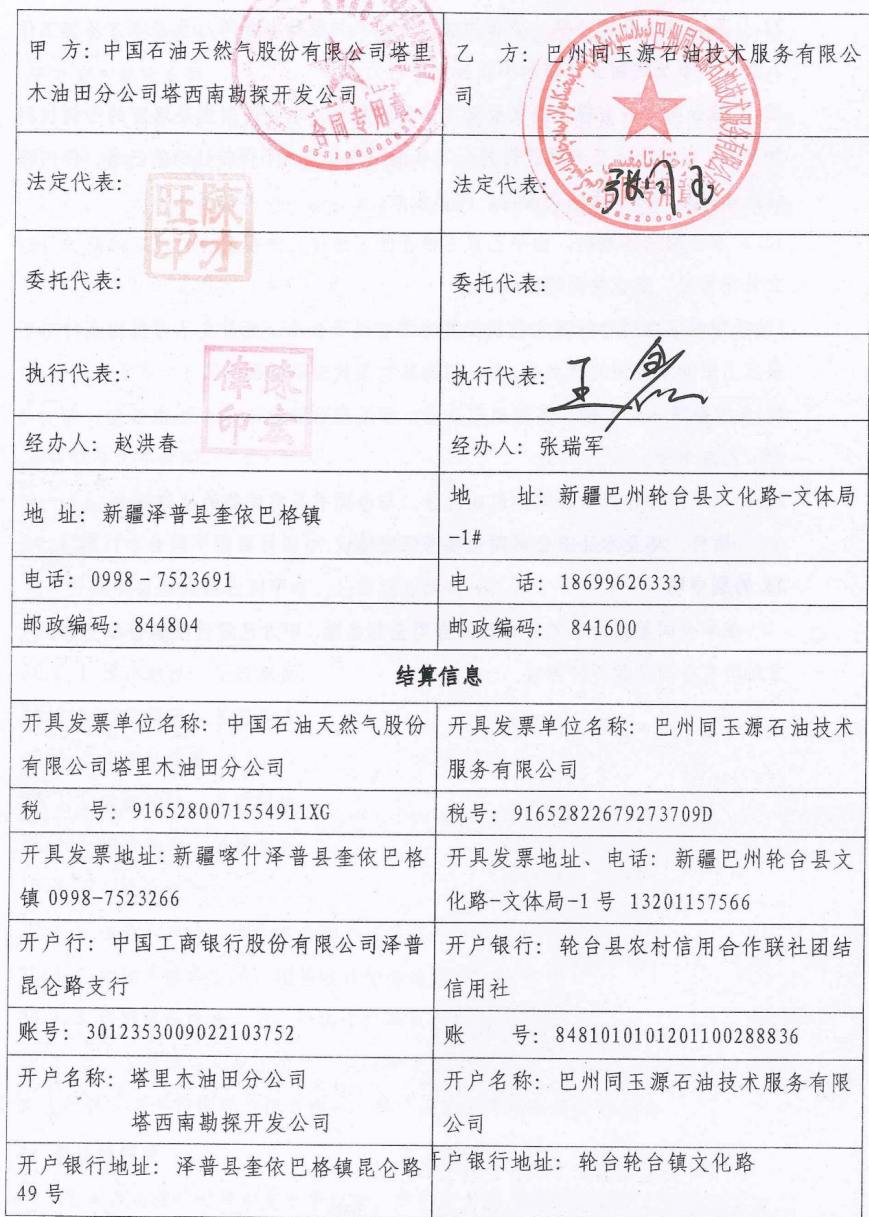 甲 方：中国石油天然气股份有限公司塔里
木油田分公司塔西南勘探开发公司
合同专用章
乙 方：巴州同玉源石油技术服务有限公
司
法定代表：
陈才
旺印
法定代表：
合同专用章
委托代表：
委托代表：
执行代表：
陈宏
伟印
执行代表：
经办人：赵洪春
经办人：张瑞军
地 址：新疆泽普县奎依巴格镇
地 址：新疆巴州轮台县文化路-文体局
-1#
电话：0998-7523691
电 话：18699626333
邮政编码：844804
邮政编码：841600
结算信息
开具发票单位名称：中国石油天然气股份
有限公司塔里木油田分公司
开具发票单位名称：巴州同玉源石油技术
服务有限公司
税 号：9165280071554911XG
税号：91652822679273709D
开具发票地址：新疆喀什泽普县奎依巴格
镇 0998-7523266
开具发票地址、电话：新疆巴州轮台县文
化路-文体局-1 号 13201157566
开户行：中国工商银行股份有限公司泽普
昆仑路支行
开户银行：轮台县农村信用合作联社团结
信用社
账号：3012353009022103752
账 号：8481010101201100288836
开户名称：塔里木油田分公司
塔西南勘探开发公司
开户名称：巴州同玉源石油技术服务有限
公司
开户银行地址：泽普县奎依巴格镇昆仑路
49 号
开户银行地址：轮台轮台镇文化路